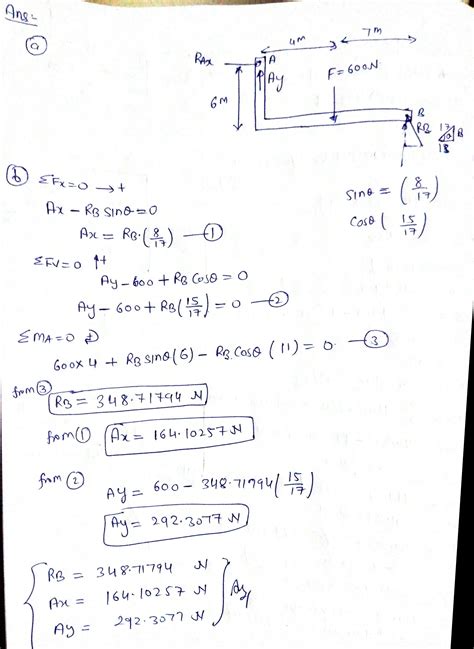 Ans:-
(a)
4M 7M
RAx A
Ay F=600N
6M
B
RB 17 8
15
(b) ΣFx=0 →+
sinθ = (8/17)
Ax - RB sinθ=0
cosθ (15/17)
Ax = RB·(8/17) —(1)
ΣFV=0 ↑+
Ay-600 + RB cosθ = 0
Ay-600 + RB(15/17) = 0 —(2)
ΣMA=0
600×4 + RB sinθ(6) - RB cosθ (11) = 0 —(3)
from (3)
RB = 348.71794 N
from (1) Ax = 164.10257 N
from (2)
Ay = 600 - 348.71794(15/17)
Ay = 292.3077 N
RB = 348.71794 N
Ax = 164.10257 N
Ay = 292.3077 N